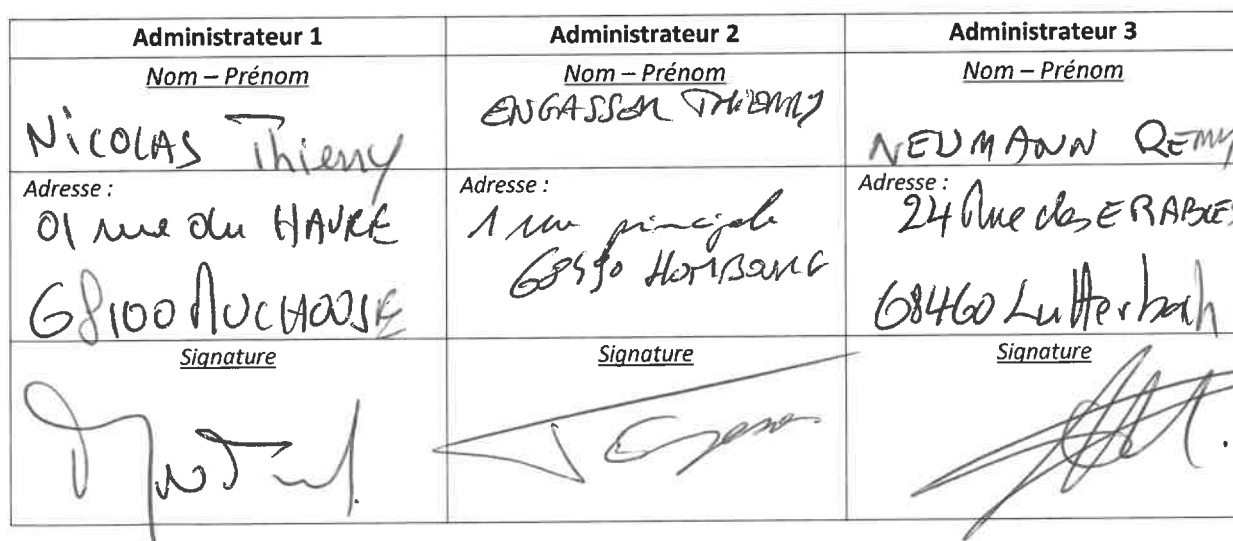 Administrateur 1
Administrateur 2
Administrateur 3
Nom – Prénom
Nom – Prénom
Nom – Prénom
NICOLAS Thierry
ENGASSER THIERRY
NEUMANN REMY
Adresse :
01 rue du HAVRE
68100 MUCHOUSE
Adresse :
1 rue principale
HOMBOURG
Adresse :
24 Rue des ERABLES
68460 Lutterbach
Signature
Signature
Signature